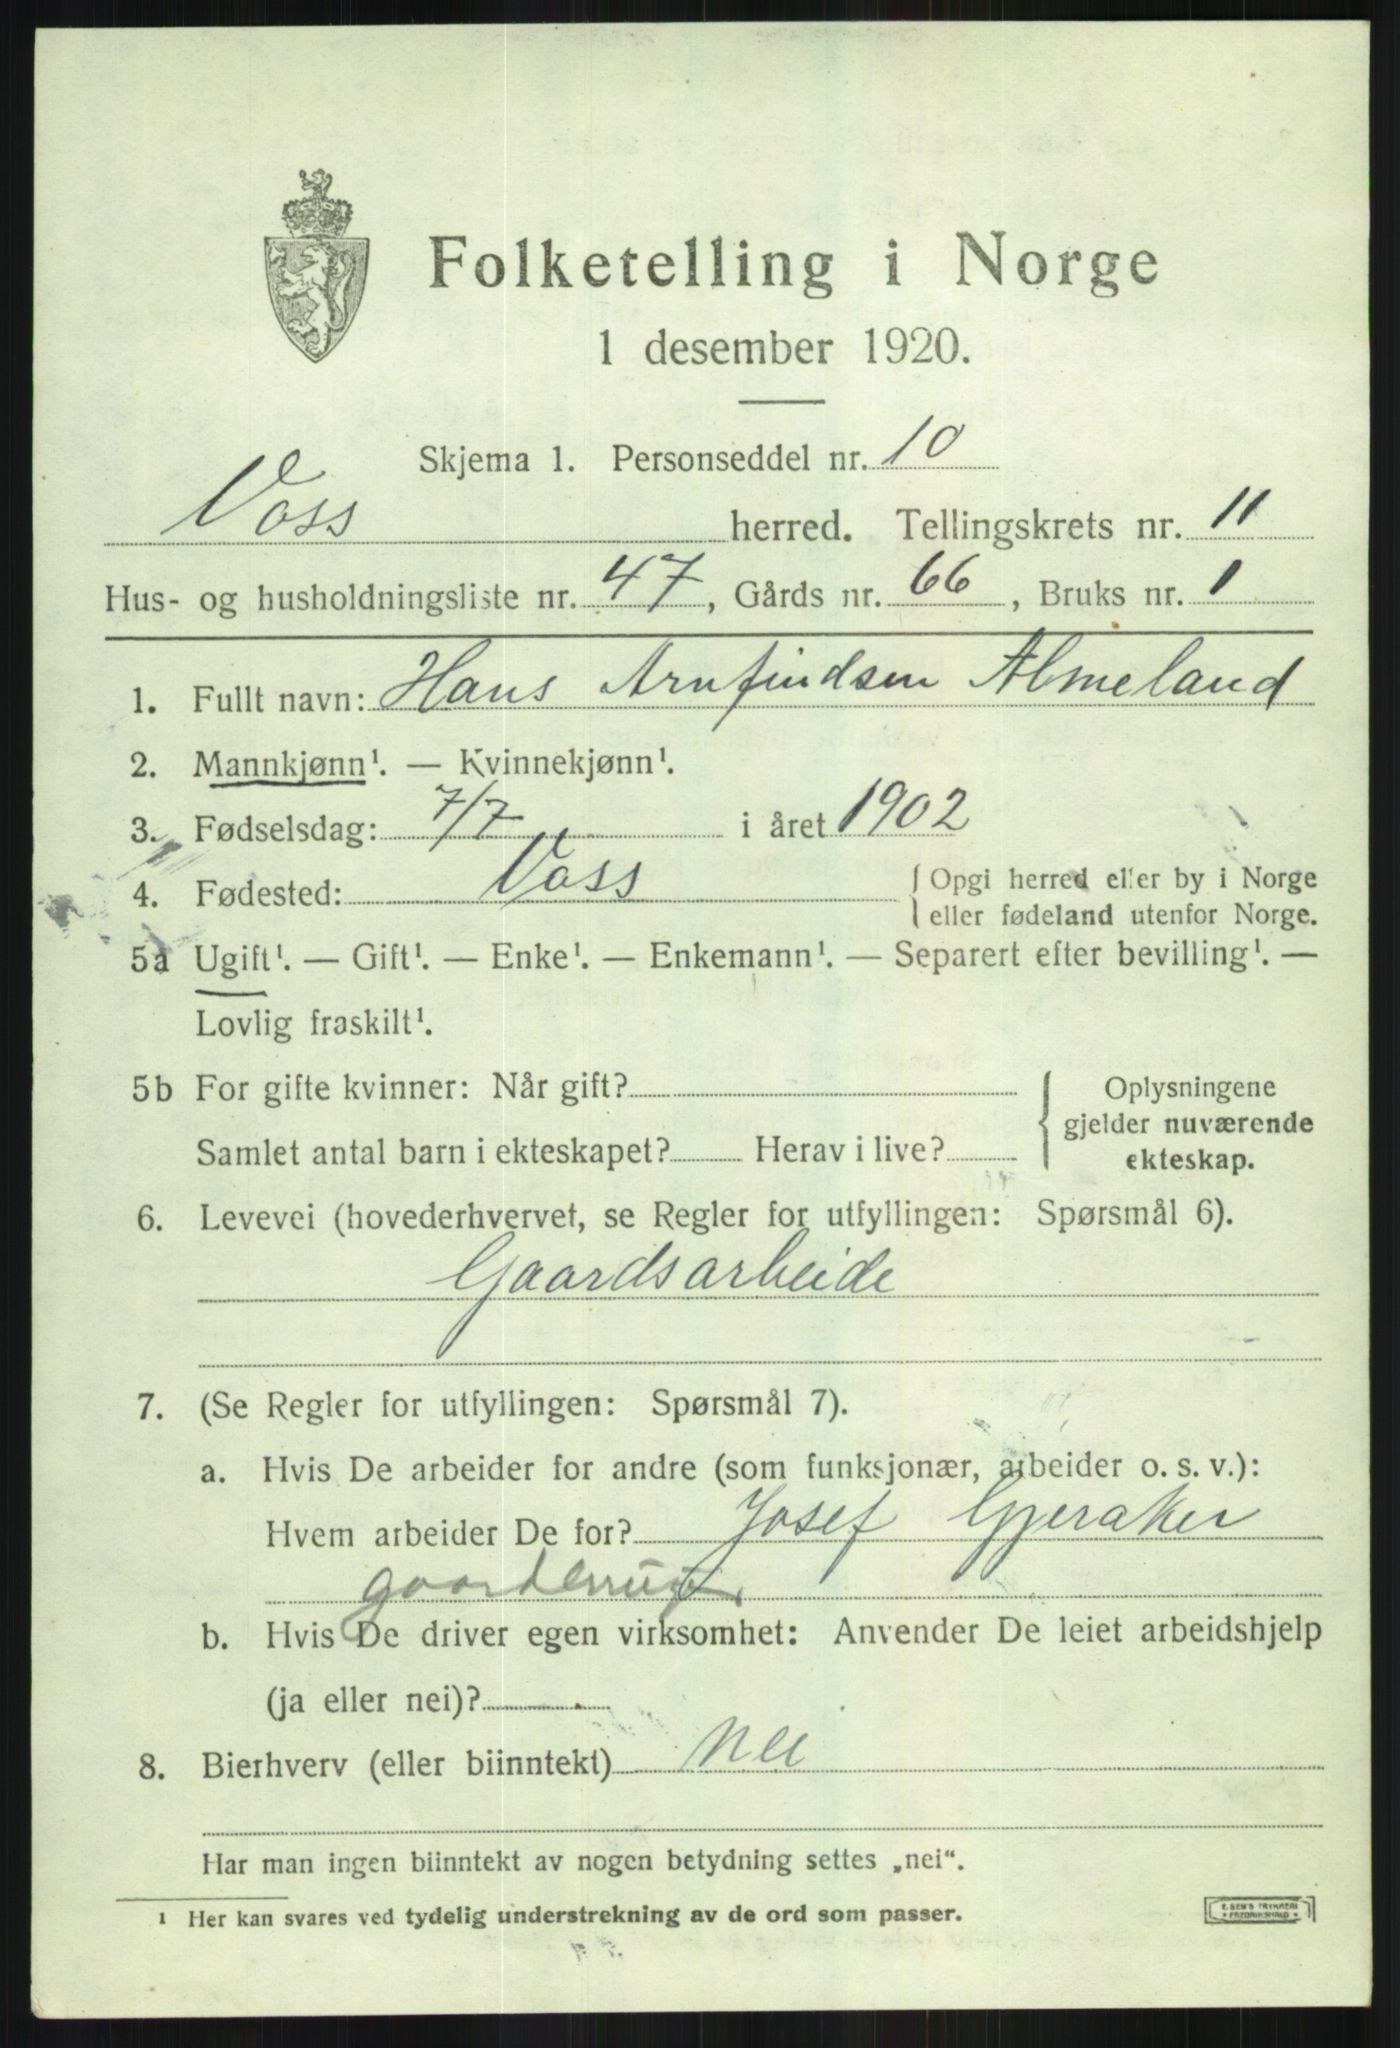 Folketelling i Norge
1 desember 1920.
Skjema 1. Personseddel nr. 10
Voss herred. Tellingskrets nr. 11
Hus- og husholdningsliste nr. 47, Gårds nr. 66, Bruks nr. 1
1. Fullt navn: Hans Arnfindsen Almeland
2. Mannkjønn¹. — Kvinnekjønn¹.
3. Fødselsdag: 7/7 i året 1902
4. Fødested: Voss { Opgi herred eller by i Norge
eller fødeland utenfor Norge.
5a Ugift¹. — Gift¹. — Enke¹. — Enkemann¹. — Separert efter bevilling¹. —
Lovlig fraskilt¹.
5b For gifte kvinner: Når gift? { Oplysningene
gjelder nuværende
Samlet antal barn i ekteskapet? Herav i live? ekteskap.
6. Levevei (hovederhvervet, se Regler for utfyllingen: Spørsmål 6).
Gaardsarbeide
7. (Se Regler for utfyllingen: Spørsmål 7).
a. Hvis De arbeider for andre (som funksjonær, arbeider o. s. v.):
Hvem arbeider De for? Josef Gjeraker
b. Hvis De driver egen virksomhet: Anvender De leiet arbeidshjelp
(ja eller nei)?
8. Bierhverv (eller biinntekt) Nei
Har man ingen biinntekt av nogen betydning settes „nei“.
¹ Her kan svares ved tydelig understrekning av de ord som passer.